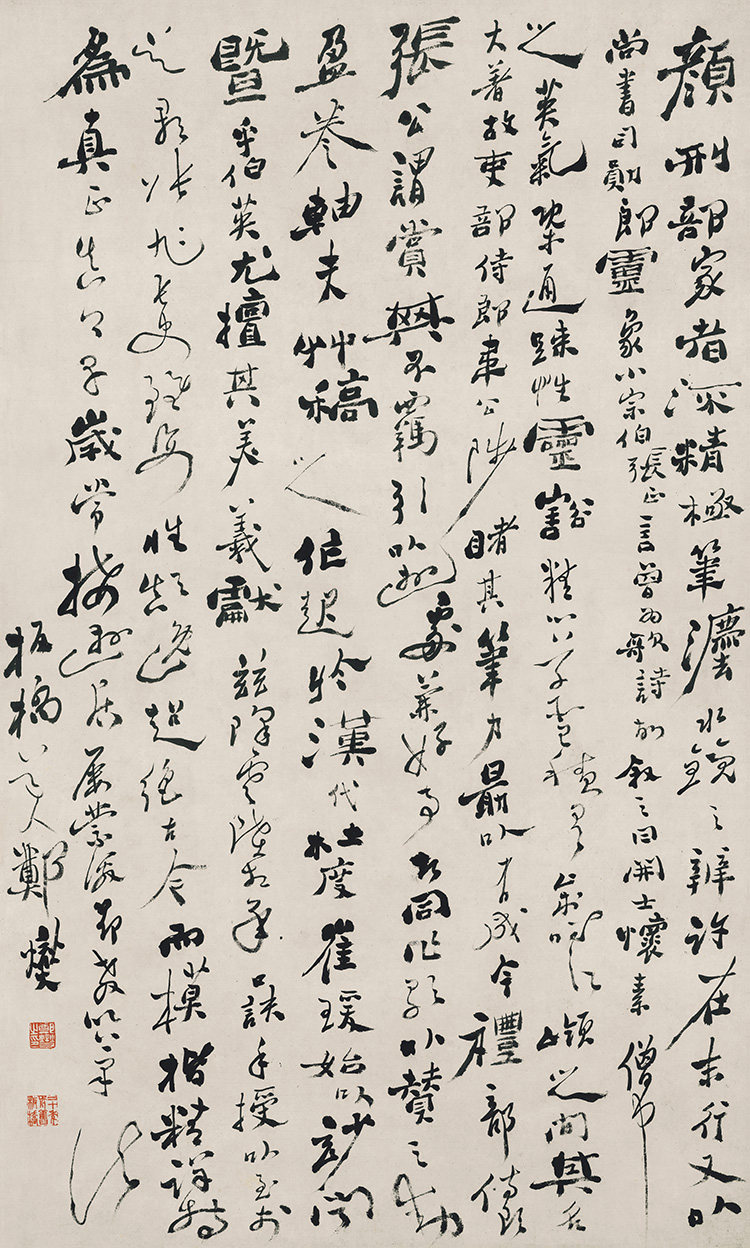 顏刑部家者流精極筆灋水鏡之辯許在末行又以
尚書司勳郎靈象小宗伯張正言曾為歌詩故叙之曰開士懷素僧中
之英氣槩通踈性靈豁精心草聖積有歲時江嶺之間其名
大著故吏部侍郎韋公陟睹其筆力最以有成今禮部侍郎
張公謂賞其不羈引以遊處兼好事者同作歌以贊之動
盈卷軸夫艸稿之作起於漢代杜度崔瑗始以妙聞
暨乎伯英尤擅其美羲獻茲降虞陸相承口訣手授以至於
吳郡張旭長史雖姿性顛逸超絕古今而模楷精詳特
為真正真卿早歲常接遊居屢蒙激昂教以筆法
板橋道人鄭燮